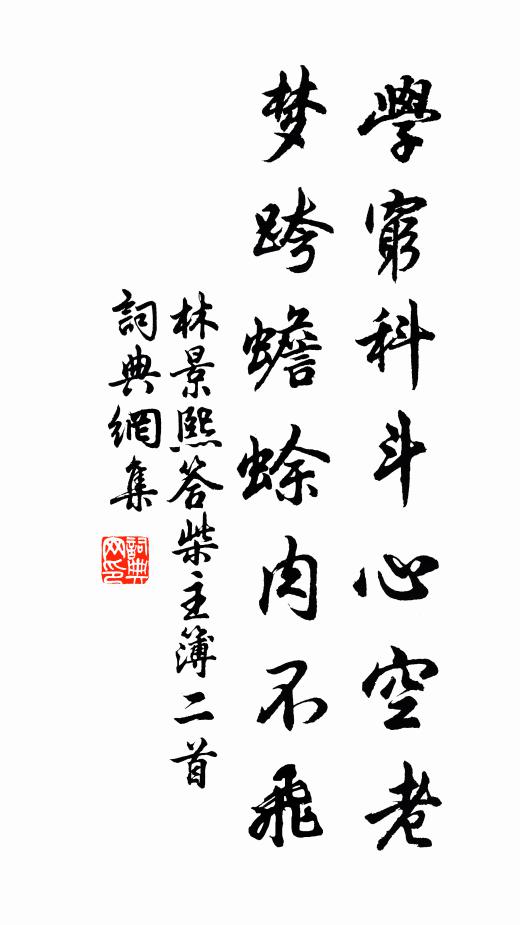 學窮科斗心空老
梦跨蟾蜍肉不飛
林景熙答柴主簿二首
詞典網集
詞典網印